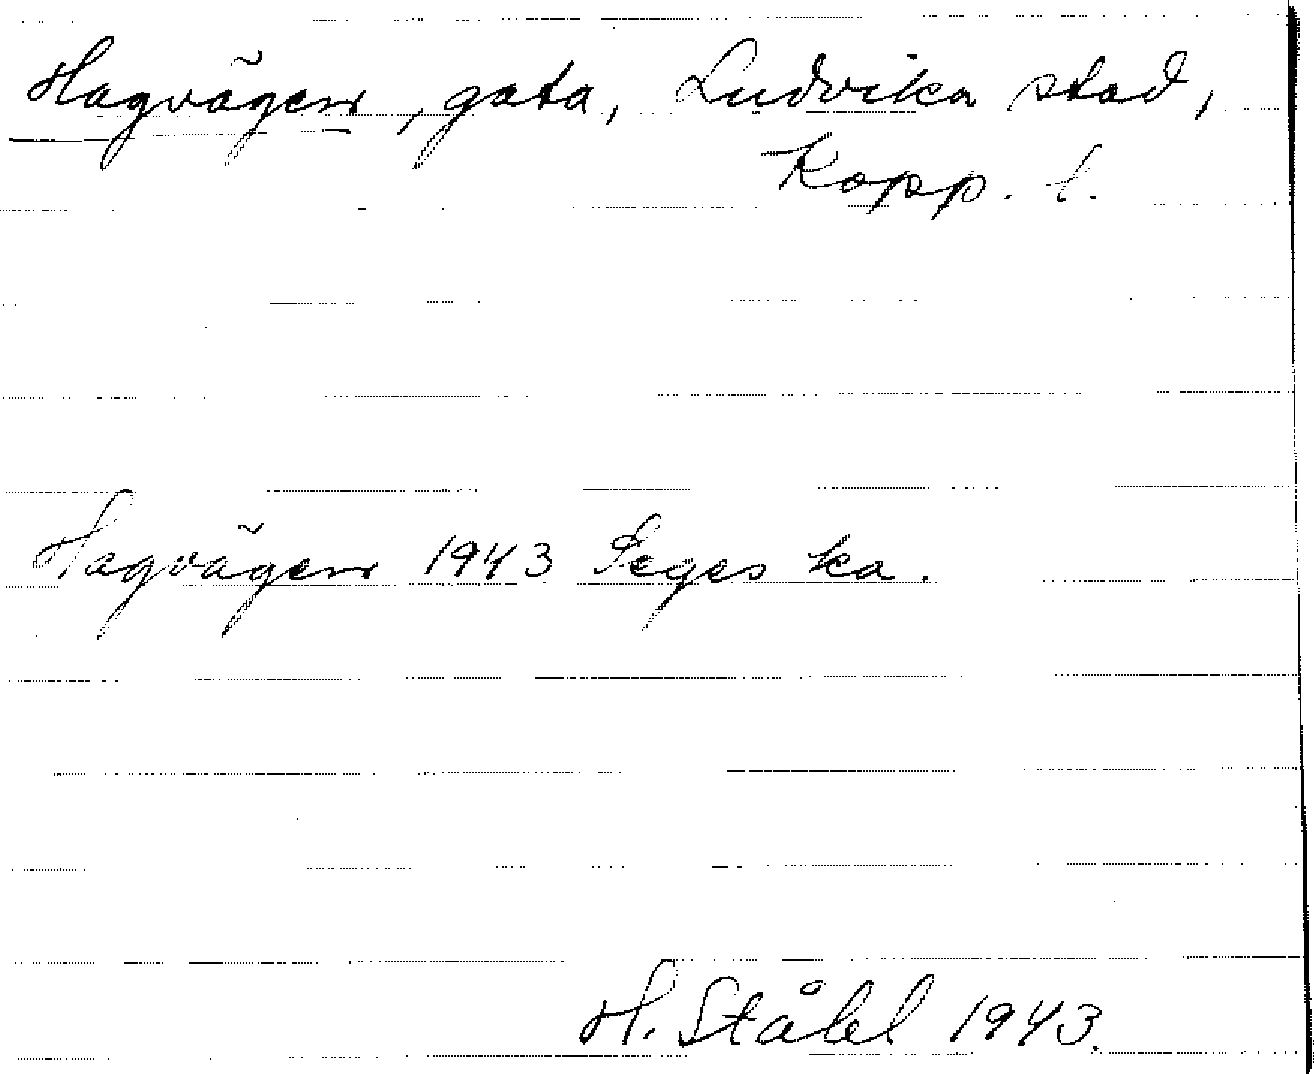 Hagvägen, gata, Ludvika stad,
Kopp. l.
Hagvägen 1943 Seges ka.
H. Ståhl 1943.